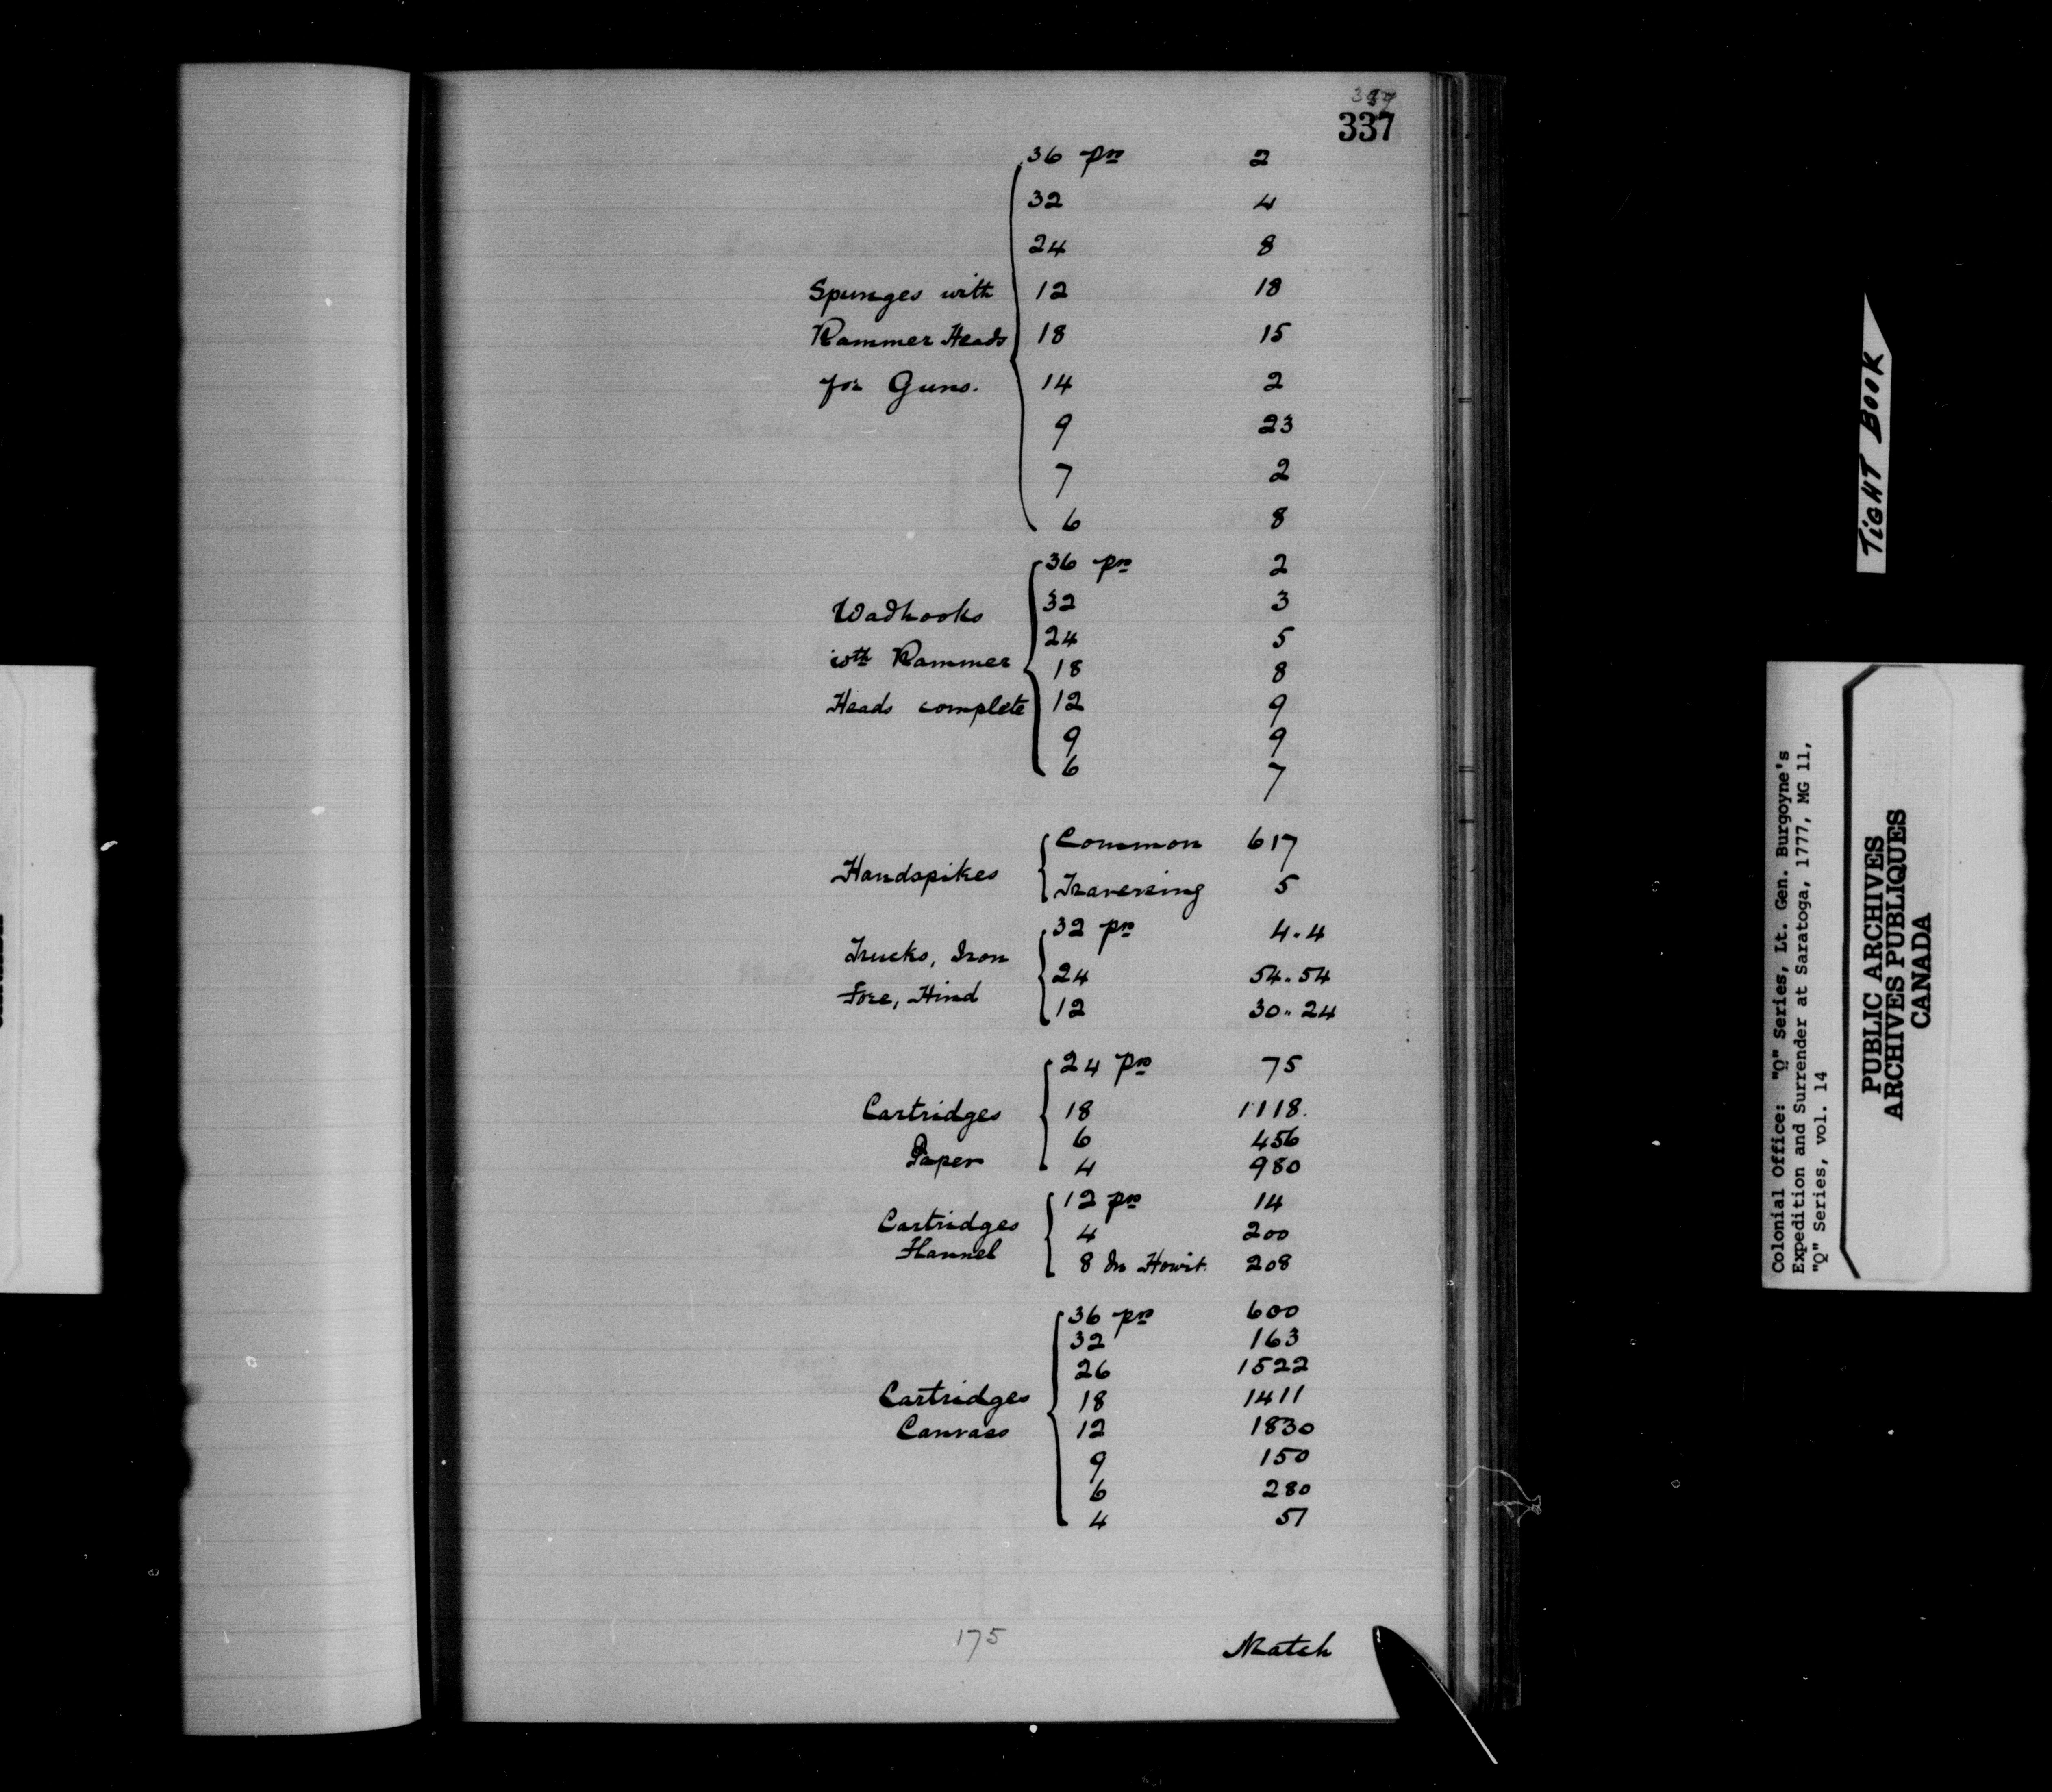 337
36 pr 2
32 4
24 8
Spunges with 12 18
Rammer Heads 18 15
for Guns. 14 2
9 23
7 2
6 8
36 pr 2
Wadhooks 32 3
24 5
with Rammer 18 8
Heads complete 12 9
9 9
6 7
Common 617
Handspikes
Traversing 5
32 pr 4.4
Trucks, Iron
24 54.54
Fore, Hind
12 30.24
24 pr 75
Cartridges 18 1118.
6 456
Paper 4 980
12 pr 14
Cartridges 4 200
Flannel 8 In Howit. 208
36 pr 600
32 163
26 1522
Cartridges 18 1411
Canvass 12 1830
9 150
6 280
4 51
175 Match
TiGHT BOOK
Colonial Office: "Q" Series, Lt. Gen. Burgoyne's
Expedition and Surrender at Saratoga, 1777, MG 11,
"Q" Series, vol. 14
PUBLIC ARCHIVES
ARCHIVES PUBLIQUES
CANADA